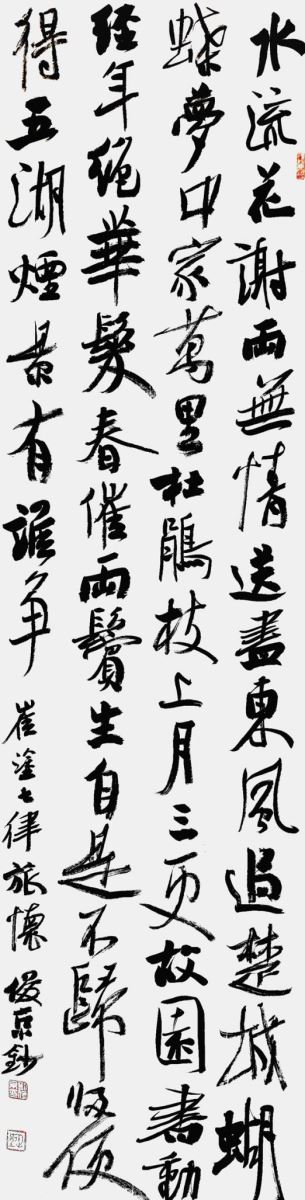 水流花謝兩無情送盡東風過楚城蝴
蝶夢中家萬里杜鵑枝上月三更故園書動
經年絕華髮春催兩鬢生自是不歸歸便
得五湖煙景有誰爭
崔塗七律旅懷 鈔